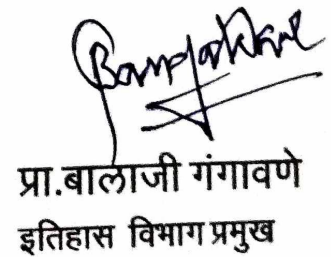 प्रा.बालाजी गंगावणे
इतिहास विभाग प्रमुख